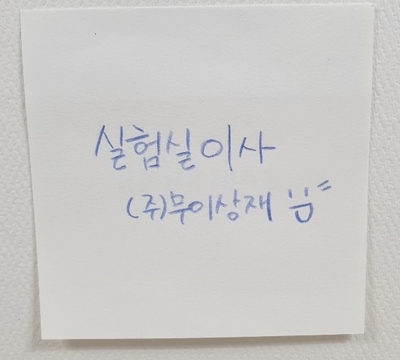 실험실이사
(주)무이상재 :D〃